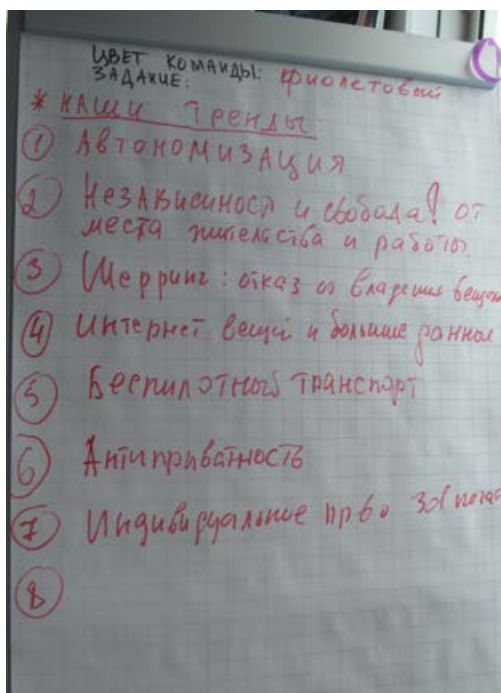 ЦВЕТ КОМАНДЫ: фиолетовый
ЗАДАНИЕ:
* НАШИ ТРЕНДЫ:
1 АВТОНОМИЗАЦИЯ
2 Независимость и свобода! от
места жительства и работы.
3 Шерринг: отказ от владения вещами
4 Интернет вещей и большие данные
5 Беспилотный транспорт
6 Антиприватность
7 Индивидуальное пр-во
8